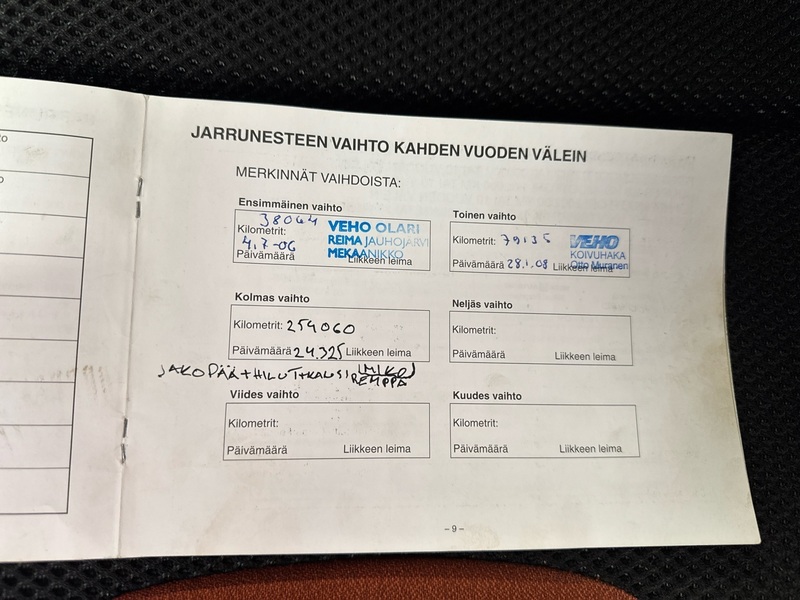 JARRUNESTEEN VAIHTO KAHDEN VUODEN VÄLEIN
MERKINNÄT VAIHDOISTA:
Ensimmäinen vaihto
Kilometrit: 38064
Päivämäärä 4.7-06
Liikkeen leima
VEHO OLARI
REIMA JAUHOJARVI
MEKAANIKKO
Toinen vaihto
Kilometrit: 79135
Päivämäärä 28.1.08 Liikkeen leima
VEHO
KOIVUHAKA
Otto Muranen
Kolmas vaihto
Kilometrit: 254060
Päivämäärä 24.325 Liikkeen leima
JAKOPÄÄ+HIHUT+KAUSI
REMPPA
Neljäs vaihto
Kilometrit:
Päivämäärä Liikkeen leima
Viides vaihto
Kilometrit:
Päivämäärä Liikkeen leima
Kuudes vaihto
Kilometrit:
Päivämäärä Liikkeen leima
– 9 –